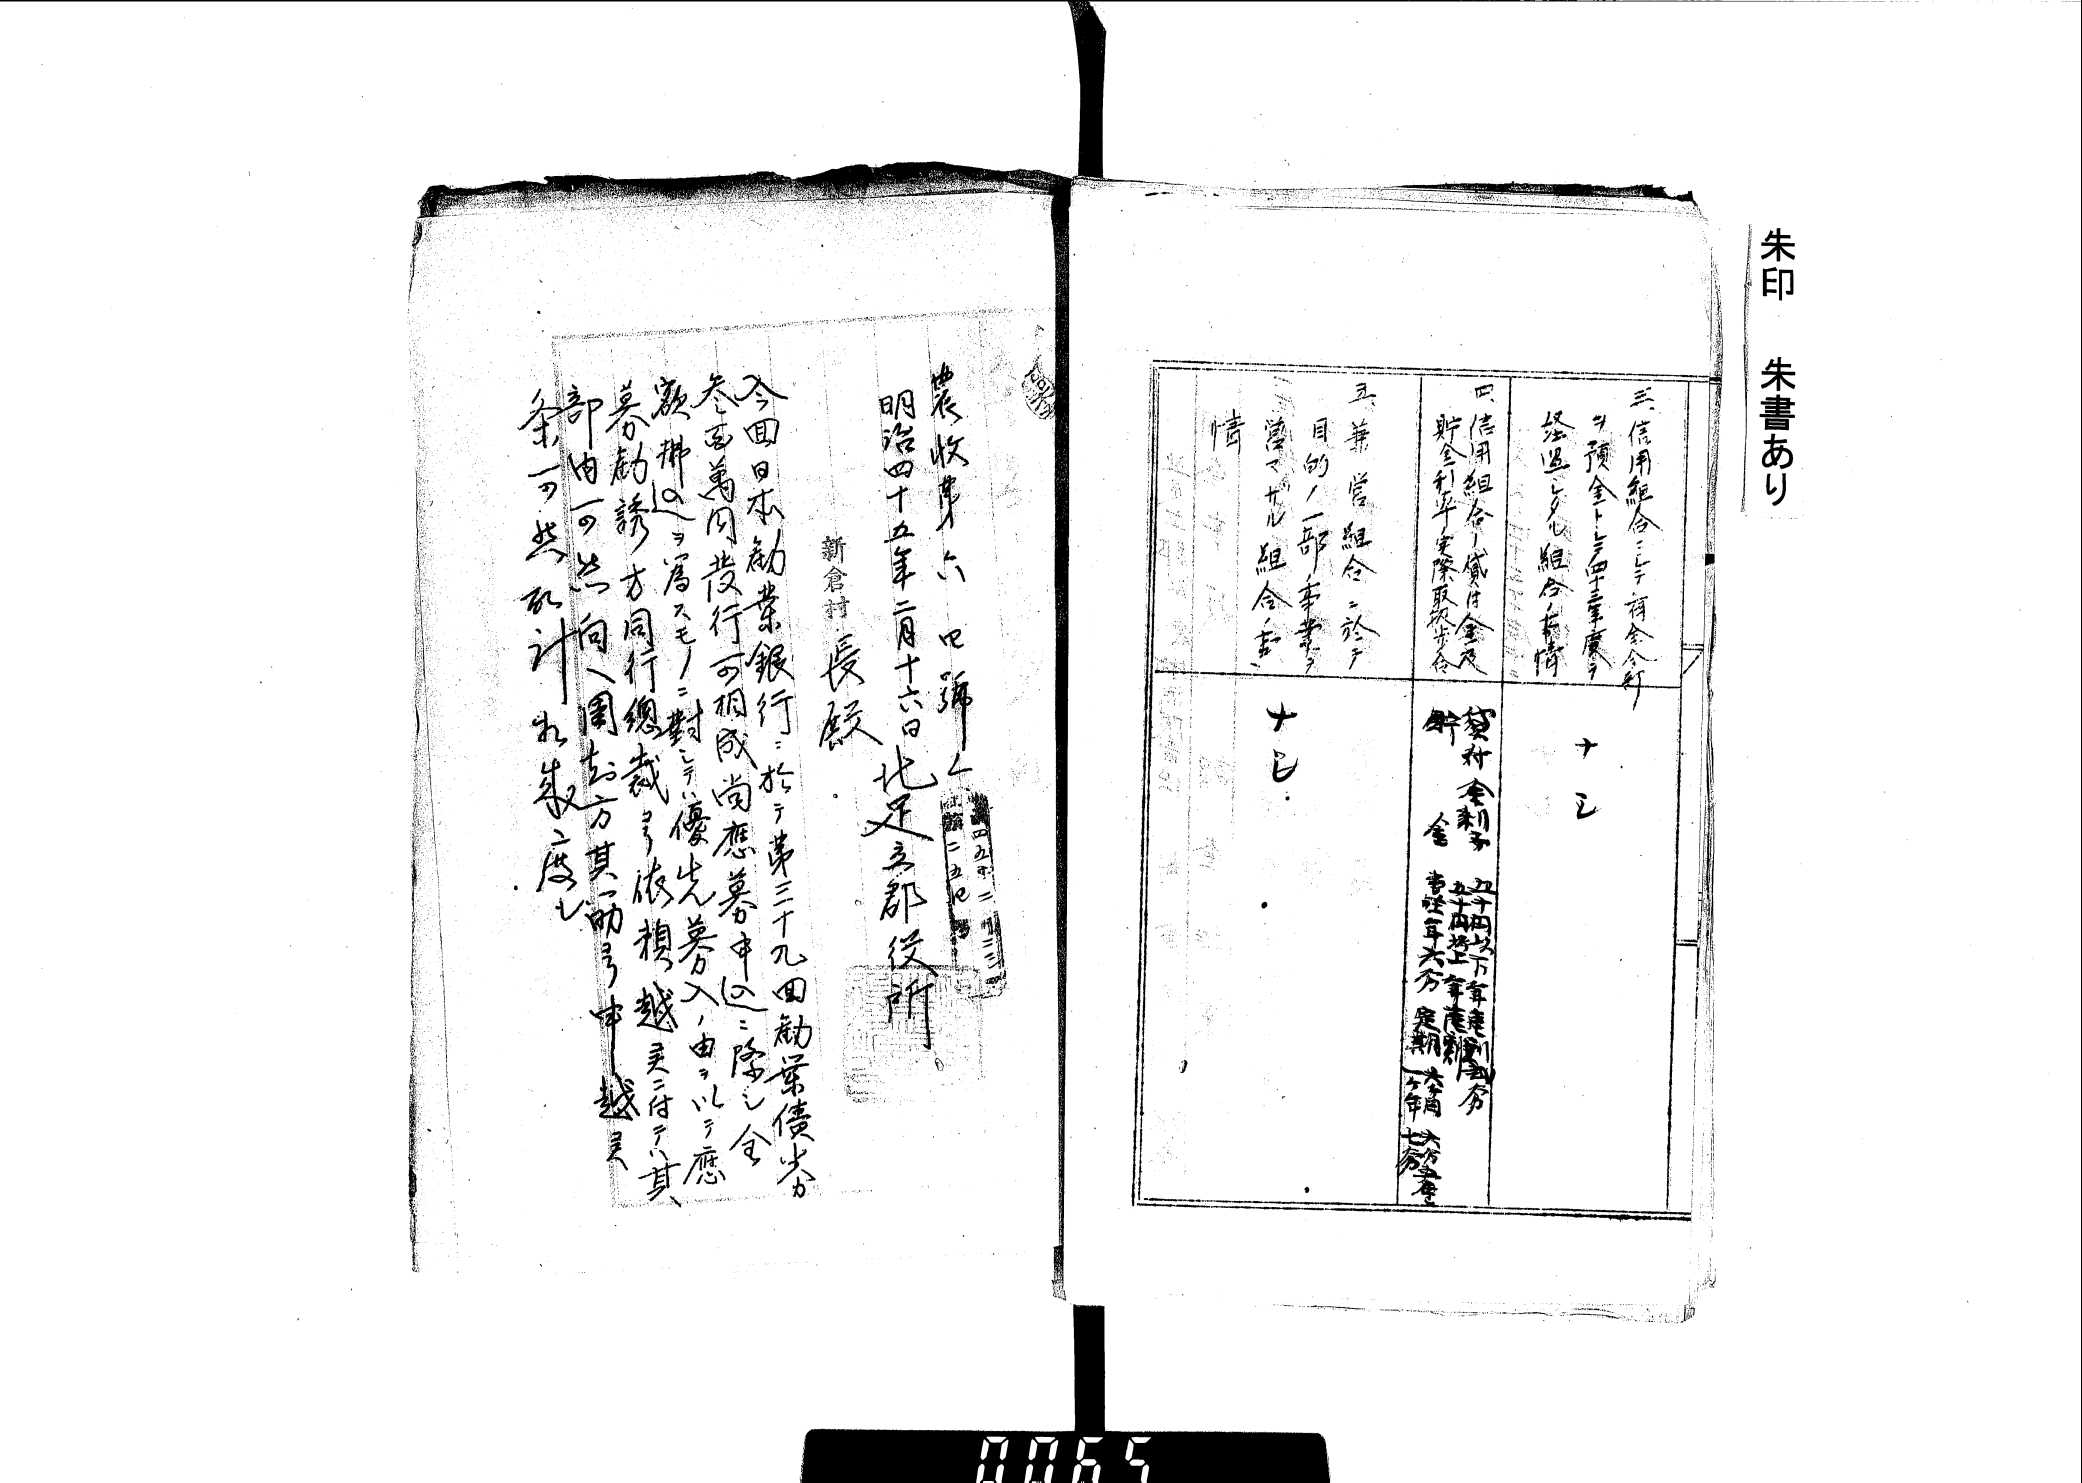 朱印 朱書あり
三、信用組合ニシテ
ヲ預金トシテ四十三年度ヲ
経過シタル組合ノ事情
ナシ
四、信用組合ノ貸付金及
貯金利率ノ実際取扱歩合
貸付金利子
貯金
五十円以下年
五十円以上年
当座年六分 定期
六ヶ月
一ヶ年 七分
五、兼営組合ニ於テ
目的ノ一部ノ事業ヲ
営マザル組合ノ事
情
ナシ
農收第六四號ノ
明治四十五年二月十六日 北足立郡役所
新倉村長殿
今回日本勧業銀行ニ於テ第三十九回勧業債券
参百萬円發行可相成尚應募申込ニ際シ全
額拂込ヲ為スモノニ對シテハ優先募入ノ由ヲ以テ應
募勧誘方同行總裁ヨリ依頼越候ニ付テハ其
部内可然向ヘ周知方其筋ヨリ申越候
条可然取計相成度シ
0065